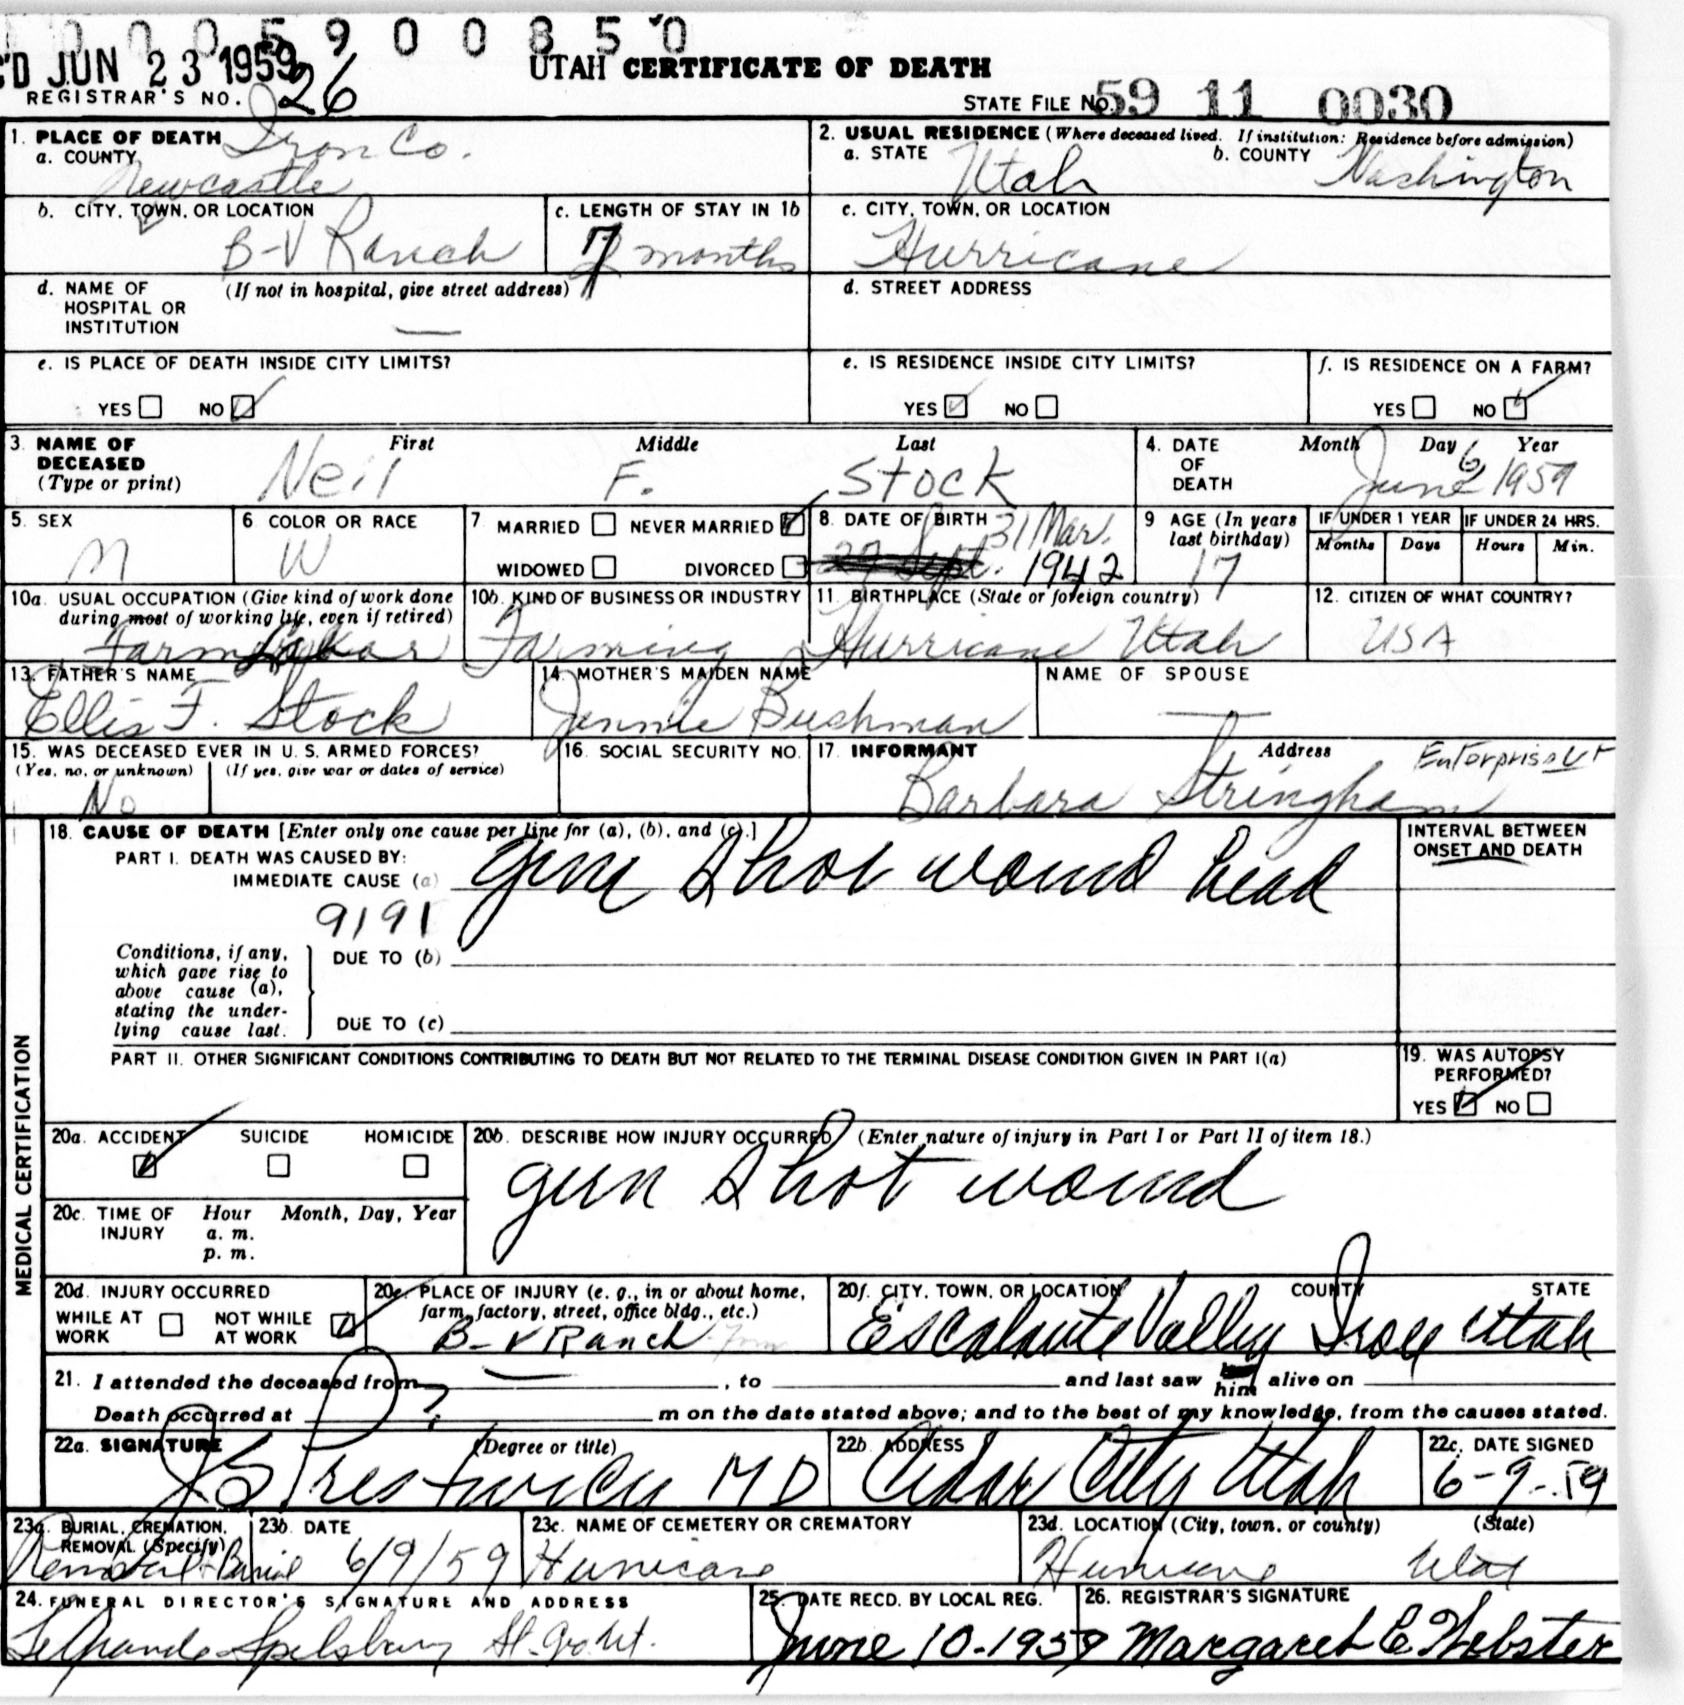 0 0 0 5 9 0 0 8 5 0
'D JUN 23 1959
UTAH CERTIFICATE OF DEATH
REGISTRAR'S NO. 26
STATE FILE No. 59 11 0030
1. PLACE OF DEATH
a. COUNTY Iron Co.
Newcastle
2. USUAL RESIDENCE (Where deceased lived. If institution: Residence before admission)
a. STATE Utah b. COUNTY Washington
b. CITY, TOWN, OR LOCATION
B-V Ranch
c. LENGTH OF STAY IN 1b
7 months
c. CITY, TOWN, OR LOCATION
Hurricane
d. NAME OF HOSPITAL OR INSTITUTION (If not in hospital, give street address)
—
d. STREET ADDRESS
e. IS PLACE OF DEATH INSIDE CITY LIMITS?
YES NO
e. IS RESIDENCE INSIDE CITY LIMITS?
YES NO
f. IS RESIDENCE ON A FARM?
YES NO
3. NAME OF DECEASED (Type or print) First Middle Last
Neil F. Stock
4. DATE OF DEATH Month Day Year
June 6 1959
5. SEX
M
6 COLOR OR RACE
W
7 MARRIED NEVER MARRIED
WIDOWED DIVORCED
8. DATE OF BIRTH 31 Mar.
27 Sept. 1942
9 AGE (In years last birthday)
17
IF UNDER 1 YEAR IF UNDER 24 HRS.
Months Days Hours Min.
10a. USUAL OCCUPATION (Give kind of work done during most of working life, even if retired)
Farm Labor
10b. KIND OF BUSINESS OR INDUSTRY
Farming
11. BIRTHPLACE (State or foreign country)
Hurricane Utah
12. CITIZEN OF WHAT COUNTRY?
USA
13. FATHER'S NAME
Ellis F. Stock
14. MOTHER'S MAIDEN NAME
Jennie Bushman
NAME OF SPOUSE
—
15. WAS DECEASED EVER IN U.S. ARMED FORCES?
(Yes, no, or unknown) (If yes, give war or dates of service)
No
16. SOCIAL SECURITY NO.
17. INFORMANT Address Enterprise Ut
Barbara Stringham
18. CAUSE OF DEATH [Enter only one cause per line for (a), (b), and (c).]
PART I. DEATH WAS CAUSED BY:
IMMEDIATE CAUSE (a) gun shot wound head
9191
INTERVAL BETWEEN
ONSET AND DEATH
Conditions, if any, which gave rise to above cause (a), stating the underlying cause last.
DUE TO (b)
DUE TO (c)
PART II. OTHER SIGNIFICANT CONDITIONS CONTRIBUTING TO DEATH BUT NOT RELATED TO THE TERMINAL DISEASE CONDITION GIVEN IN PART I(a)
19. WAS AUTOPSY PERFORMED?
YES NO
MEDICAL CERTIFICATION
20a. ACCIDENT SUICIDE HOMICIDE
20b. DESCRIBE HOW INJURY OCCURRED (Enter nature of injury in Part I or Part II of item 18.)
gun shot wound
20c. TIME OF INJURY Hour Month, Day, Year
a. m.
p. m.
20d. INJURY OCCURRED
WHILE AT WORK NOT WHILE AT WORK
20e. PLACE OF INJURY (e. g., in or about home, farm, factory, street, office bldg., etc.)
B-V Ranch
20f. CITY, TOWN, OR LOCATION COUNTY STATE
Escalante Valley Iron Utah
21. I attended the deceased from — , to and last saw him alive on
Death occurred at ? m on the date stated above; and to the best of my knowledge, from the causes stated.
22a. SIGNATURE (Degree or title)
Prestwich MD
22b. ADDRESS
Cedar City Utah
22c. DATE SIGNED
6-9-59
23a. BURIAL, CREMATION, REMOVAL (Specify)
Removal + Burial
23b. DATE
6/9/59
23c. NAME OF CEMETERY OR CREMATORY
Hurricane
23d. LOCATION (City, town, or county) (State)
Hurricane Utah
24. FUNERAL DIRECTOR'S SIGNATURE AND ADDRESS
Spilsbury St. Geo Ut.
25. DATE RECD. BY LOCAL REG.
June 10-1959
26. REGISTRAR'S SIGNATURE
Margaret E Webster